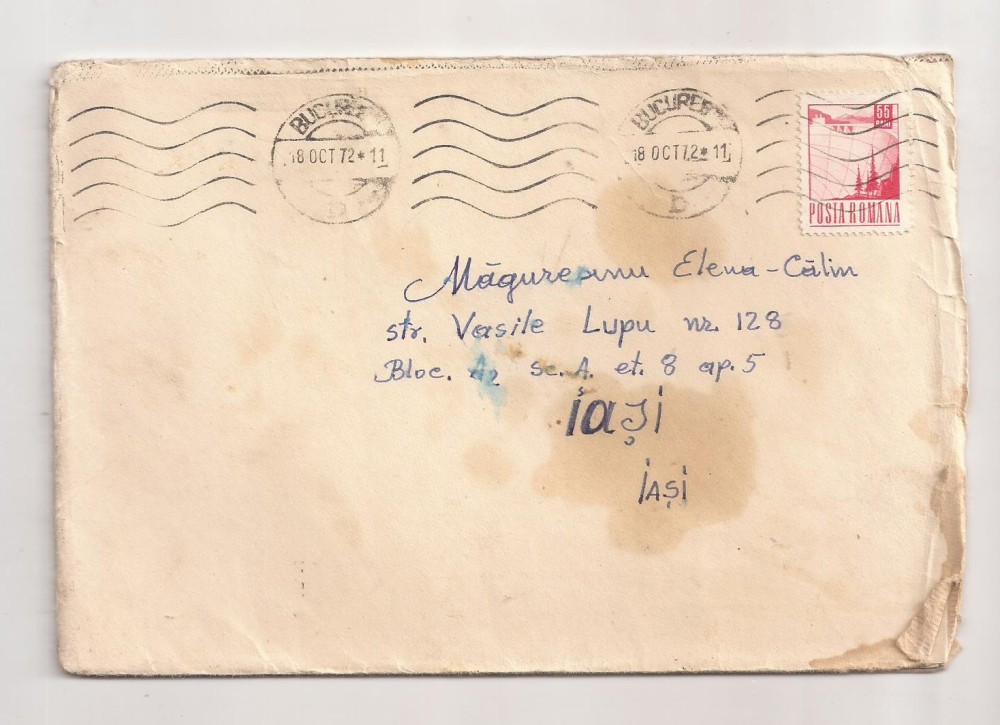 BUCUREȘ
18 OCT 72 * 11
D
BUCUREȘ
18 OCT 72 * 11
D
55
BANI
POSTA ROMANA
Măgureanu Elena-Călin
str. Vasile Lupu nr. 128
Bloc. A2 sc. A. et. 8 ap. 5
iași
IAȘI